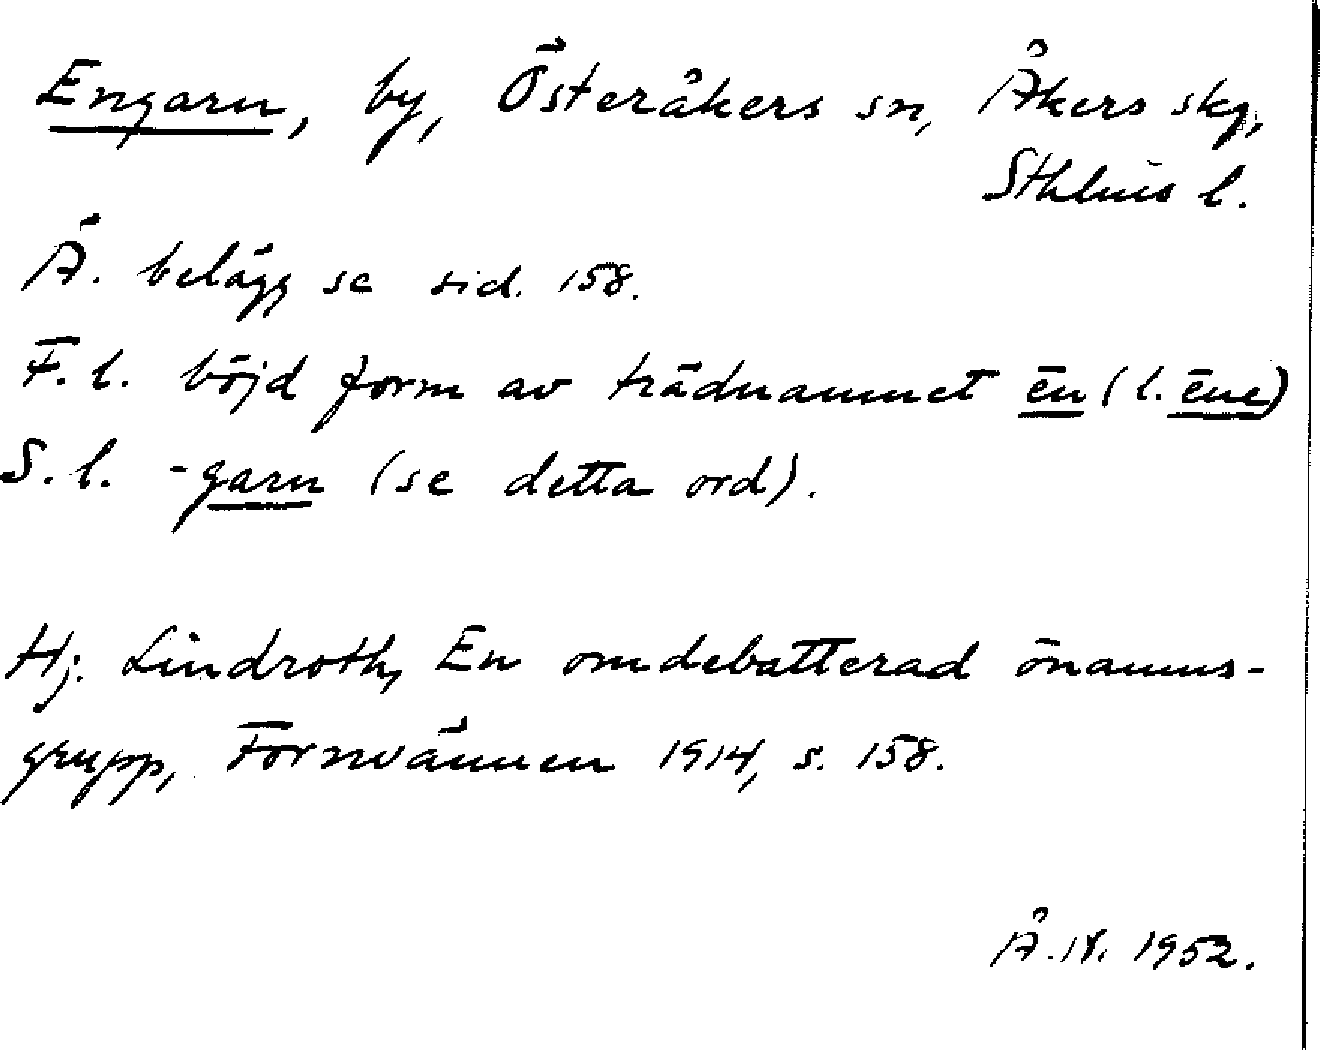 Engarn, by, Österåkers sn, Åkers skg,
Sthlms l.
Ä. belägg se sid. 158.
F.l. böjd form av trädnamnet ēn (l. ēne)
S.l. -garn (se detta ord).
Hj. Lindroth, En omdebatterad önamns-
grupp, Fornvännen 1914, s. 158.
1952.